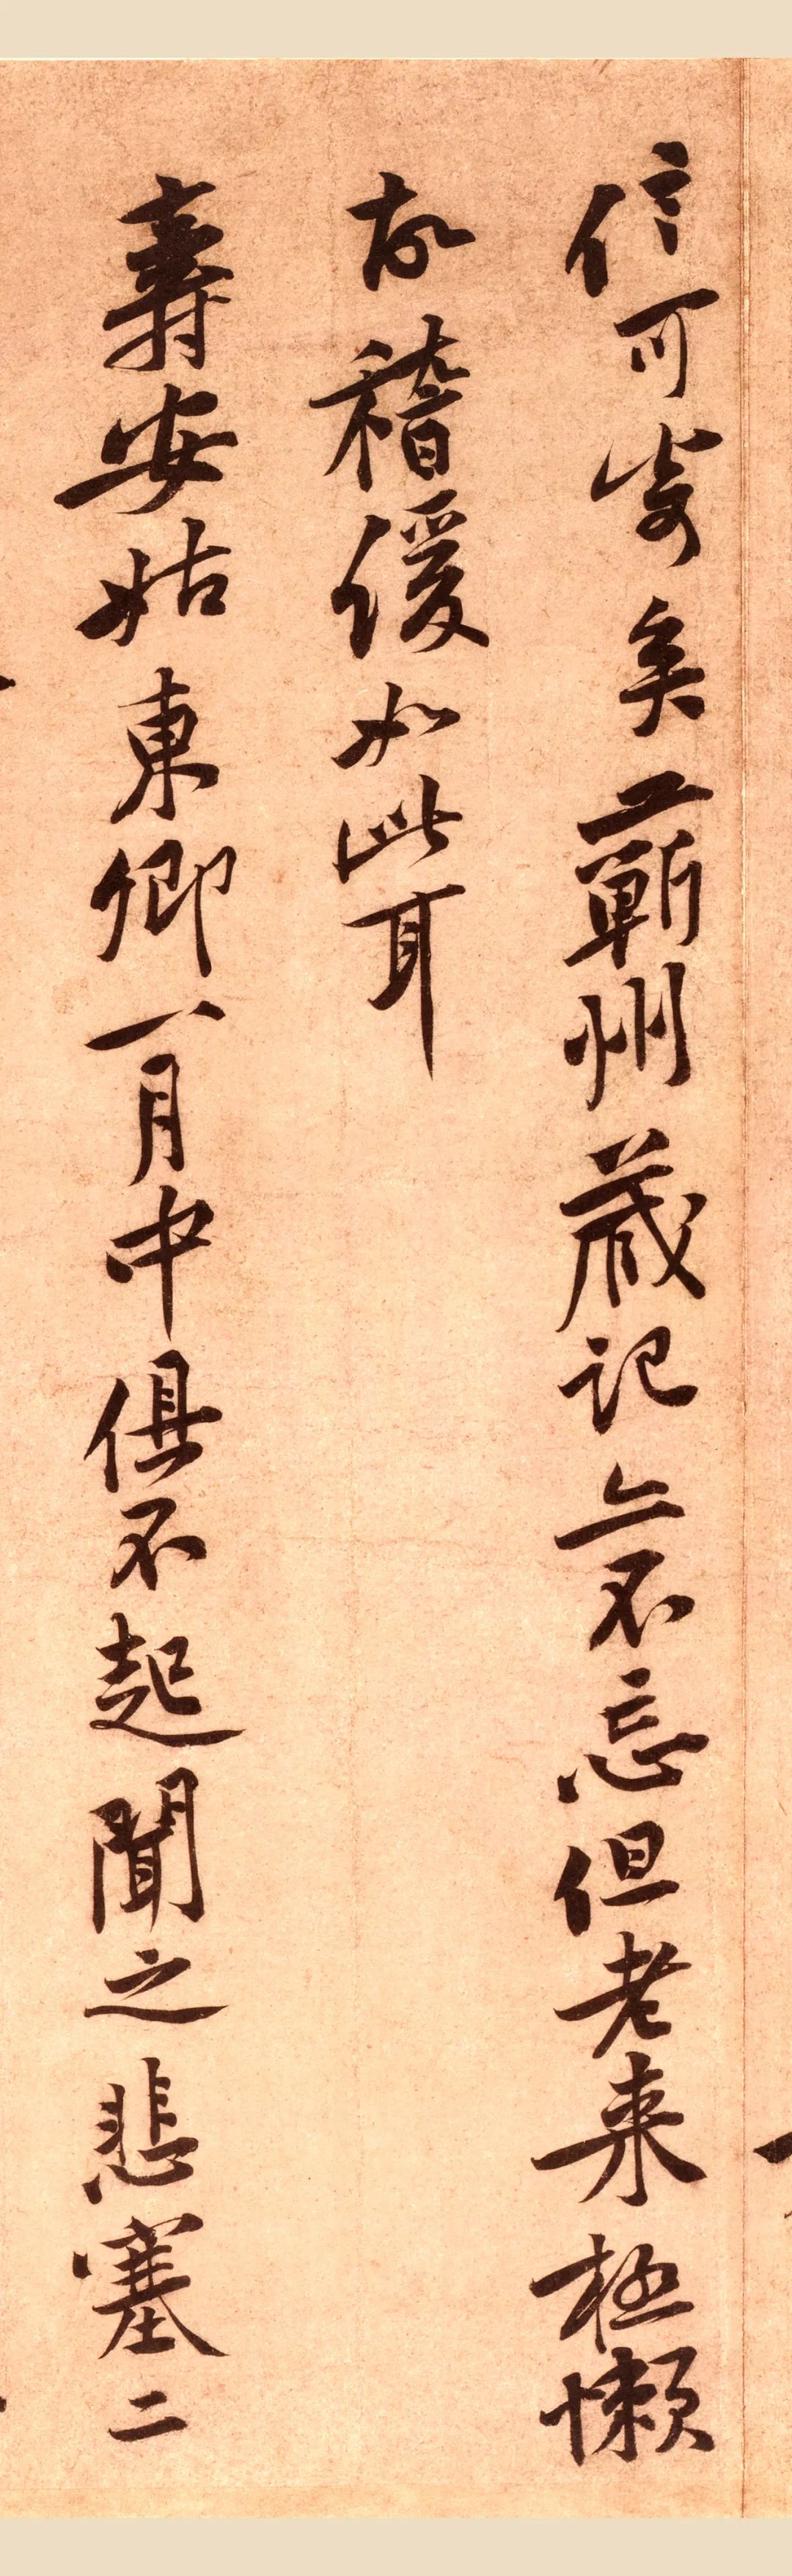 信可寄矣上蘄州藏記亦不忘但老来極懶
故稽缓如此耳
壽安姑東卿一月中俱不起聞之悲塞二